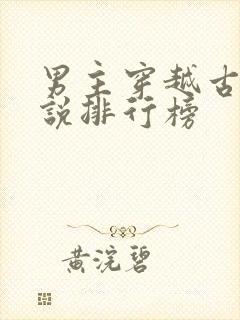 男主穿越古
說排行榜
黃浣碧